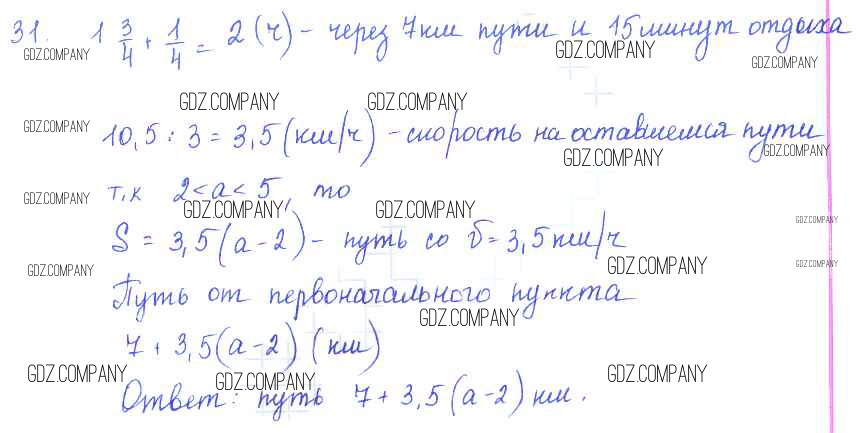 31. 1 3/4 + 1/4 = 2 (ч) - через 7 км пути и 15 минут отдыха
GDZ.COMPANY GDZ.COMPANY GDZ.COMPANY
GDZ.COMPANY GDZ.COMPANY
GDZ.COMPANY 10,5 : 3 = 3,5 (км/ч) - скорость на оставшемся пути
GDZ.COMPANY GDZ.COMPANY
GDZ.COMPANY т.к 2 < a < 5, то
GDZ.COMPANY GDZ.COMPANY GDZ.COMPANY
S = 3,5 (a - 2) - путь со v = 3,5 км/ч
GDZ.COMPANY GDZ.COMPANY GDZ.COMPANY
Путь от первоначального пункта
GDZ.COMPANY
7 + 3,5 (a - 2) (км)
GDZ.COMPANY GDZ.COMPANY GDZ.COMPANY
Ответ: путь 7 + 3,5 (a - 2) км.